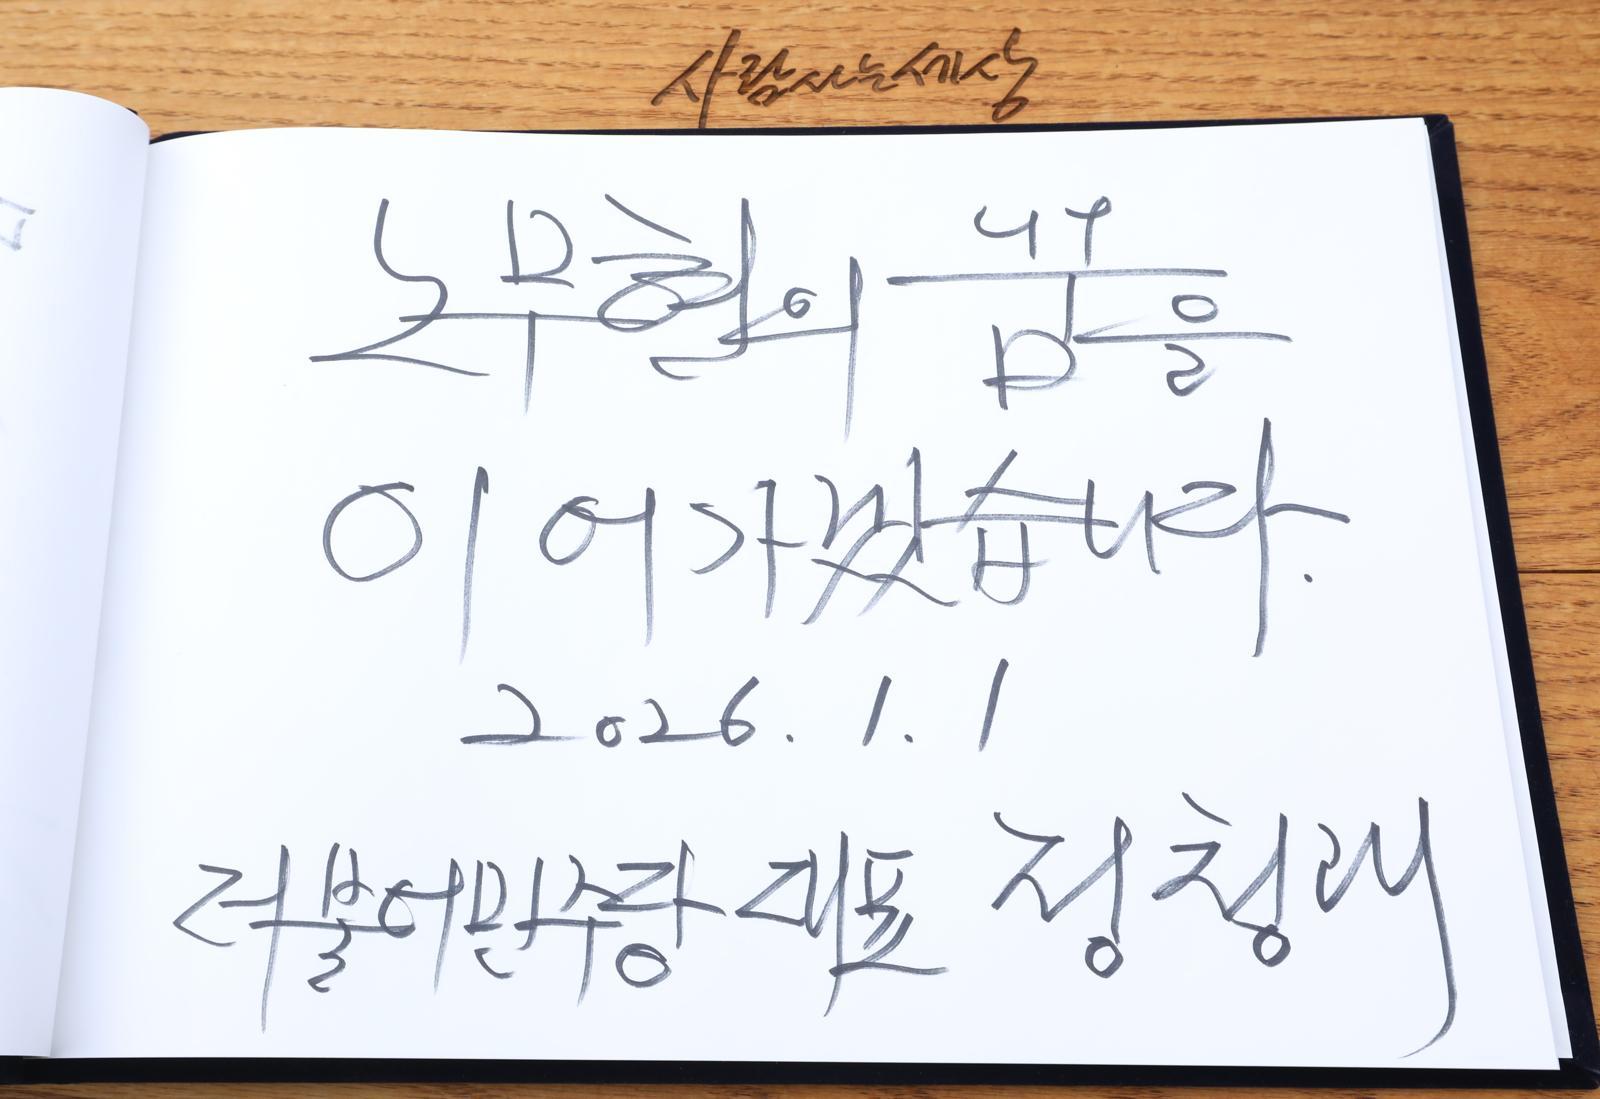 사람사는세상
노무현의 꿈을
이어가겠습니다.
2026. 1. 1
더불어민주당 대표 정청래